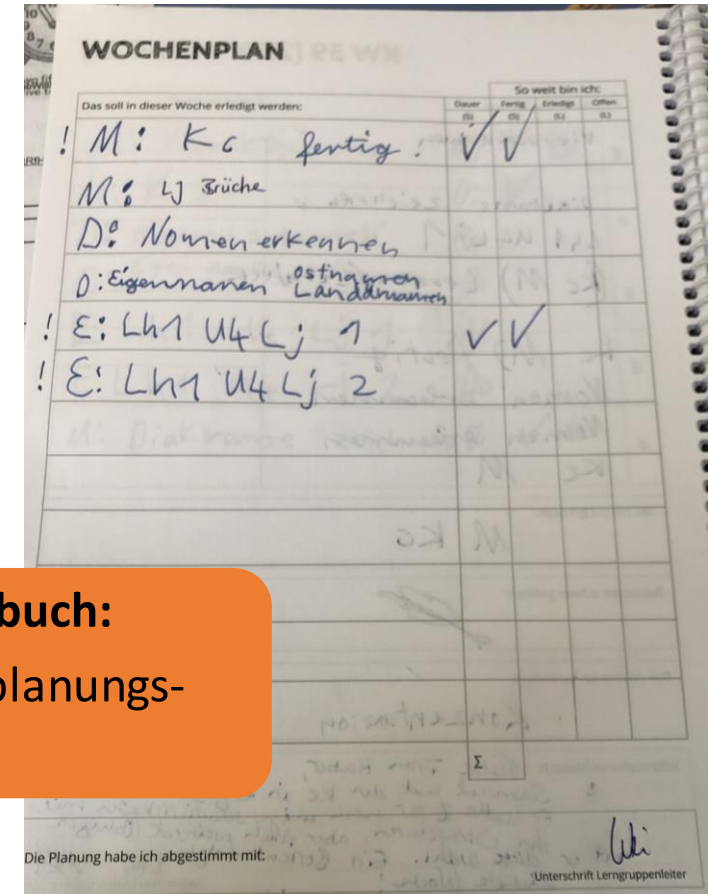 WOCHENPLAN
So weit bin ich:
Das soll in dieser Woche erledigt werden: Dauer Fertig Erledigt Offen
(S) (S) (L) (L)
! M: Kc fertig! √ √
M: Lj Brüche
D: Nomen erkennen
D: Eigennamen
Ländernamen
! E: Lh1 U4 Lj 1 √ √
! E: Lh1 U4 Lj 2
buch:
planungs-
Σ
Die Planung habe ich abgestimmt mit:
Unterschrift Lerngruppenleiter